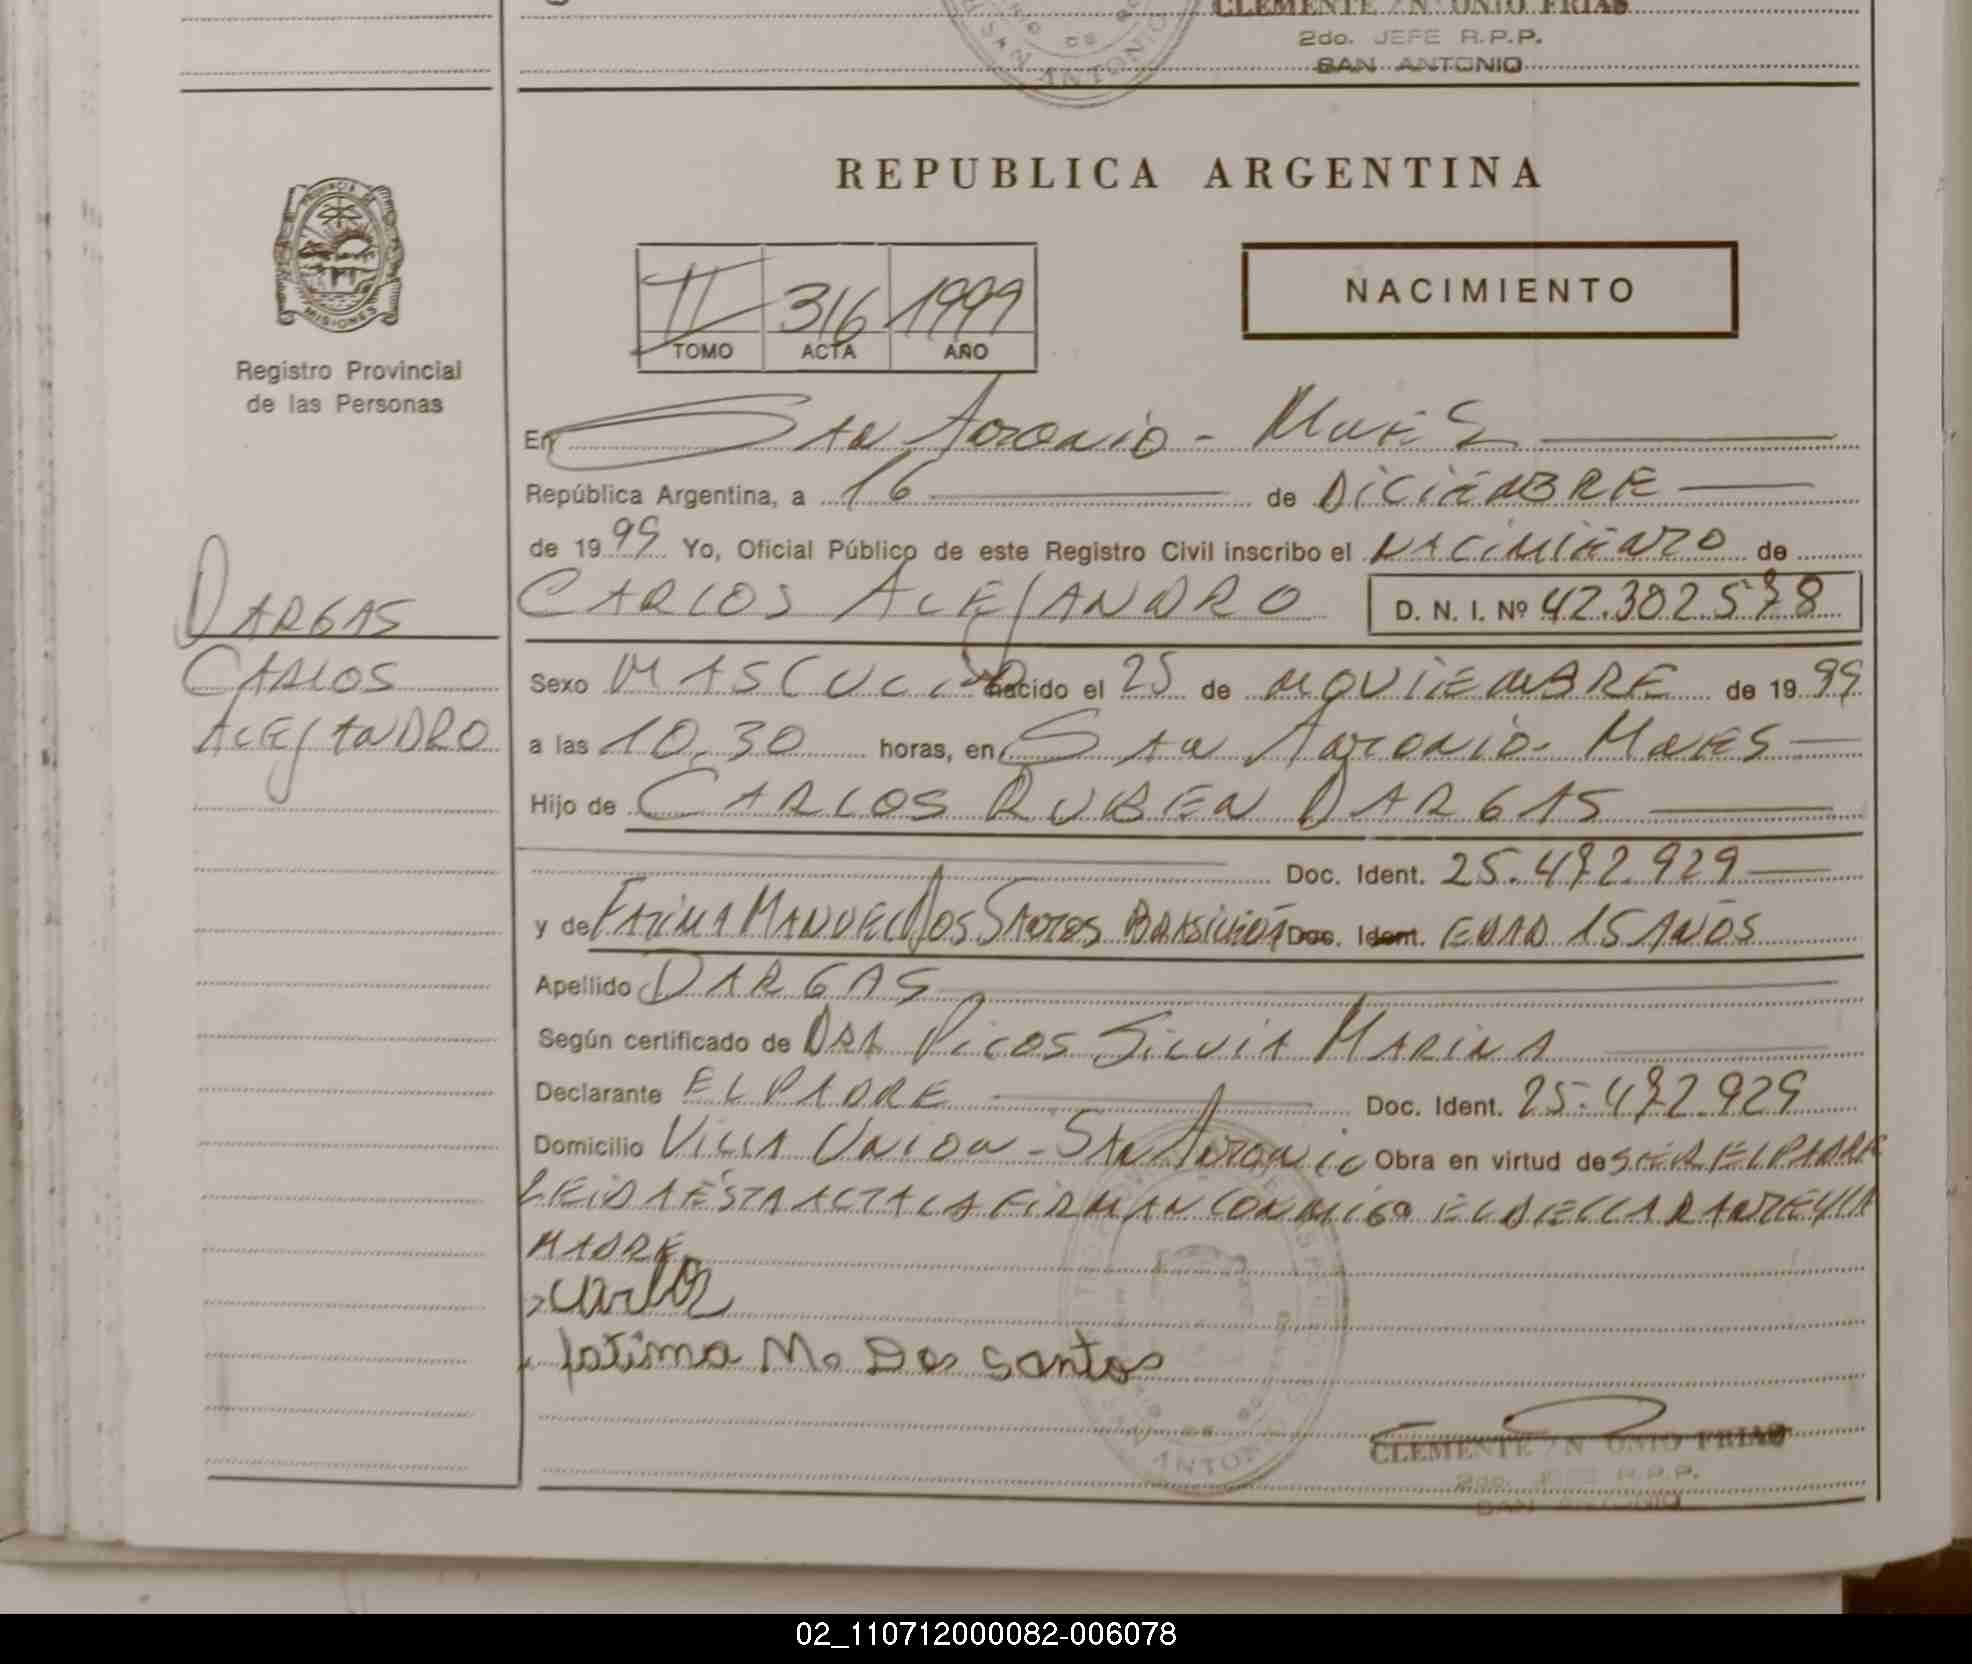 CLEMENTE ANTONIO FRIAS
2do. JEFE R.P.P.
SAN ANTONIO
SAN ANTONIO
REPUBLICA ARGENTINA
PROVINCIA DE
MISIONES
Registro Provincial
de las Personas
II 316 1999
TOMO ACTA AÑO
NACIMIENTO
En San Antonio - Mnes
República Argentina, a 16 de DICIEMBRE
de 1999 Yo, Oficial Público de este Registro Civil inscribo el NACIMIENTO de
CARLOS ALEJANDRO D. N. I. Nº 42.302.578
DARGAS
CARLOS
ALEJANDRO
Sexo MASCULINO nacido el 25 de NOVIEMBRE de 1999
a las 10,30 horas, en San Antonio - Mnes
Hijo de CARLOS RUBEN DARGAS
Doc. Ident. 25.472.929
y de FATIMA MANUEL DOS SANTOS Doc. Ident. EDAD 15 AÑOS
Apellido DARGAS
Según certificado de DRA PICOS SILVIA MARINA
Declarante EL PADRE Doc. Ident. 25.472.929
Domicilio VILLA UNION - San Antonio Obra en virtud de SER EL PADRE
LEIDA ESTA ACTA LA FIRMAN CONMIGO EL DECLARANTE Y LA
MADRE
Carlos
fatima M. Dos Santos
CLEMENTE ANTONIO FRIAS
2do. JEFE R.P.P.
SAN ANTONIO
02_110712000082-006078